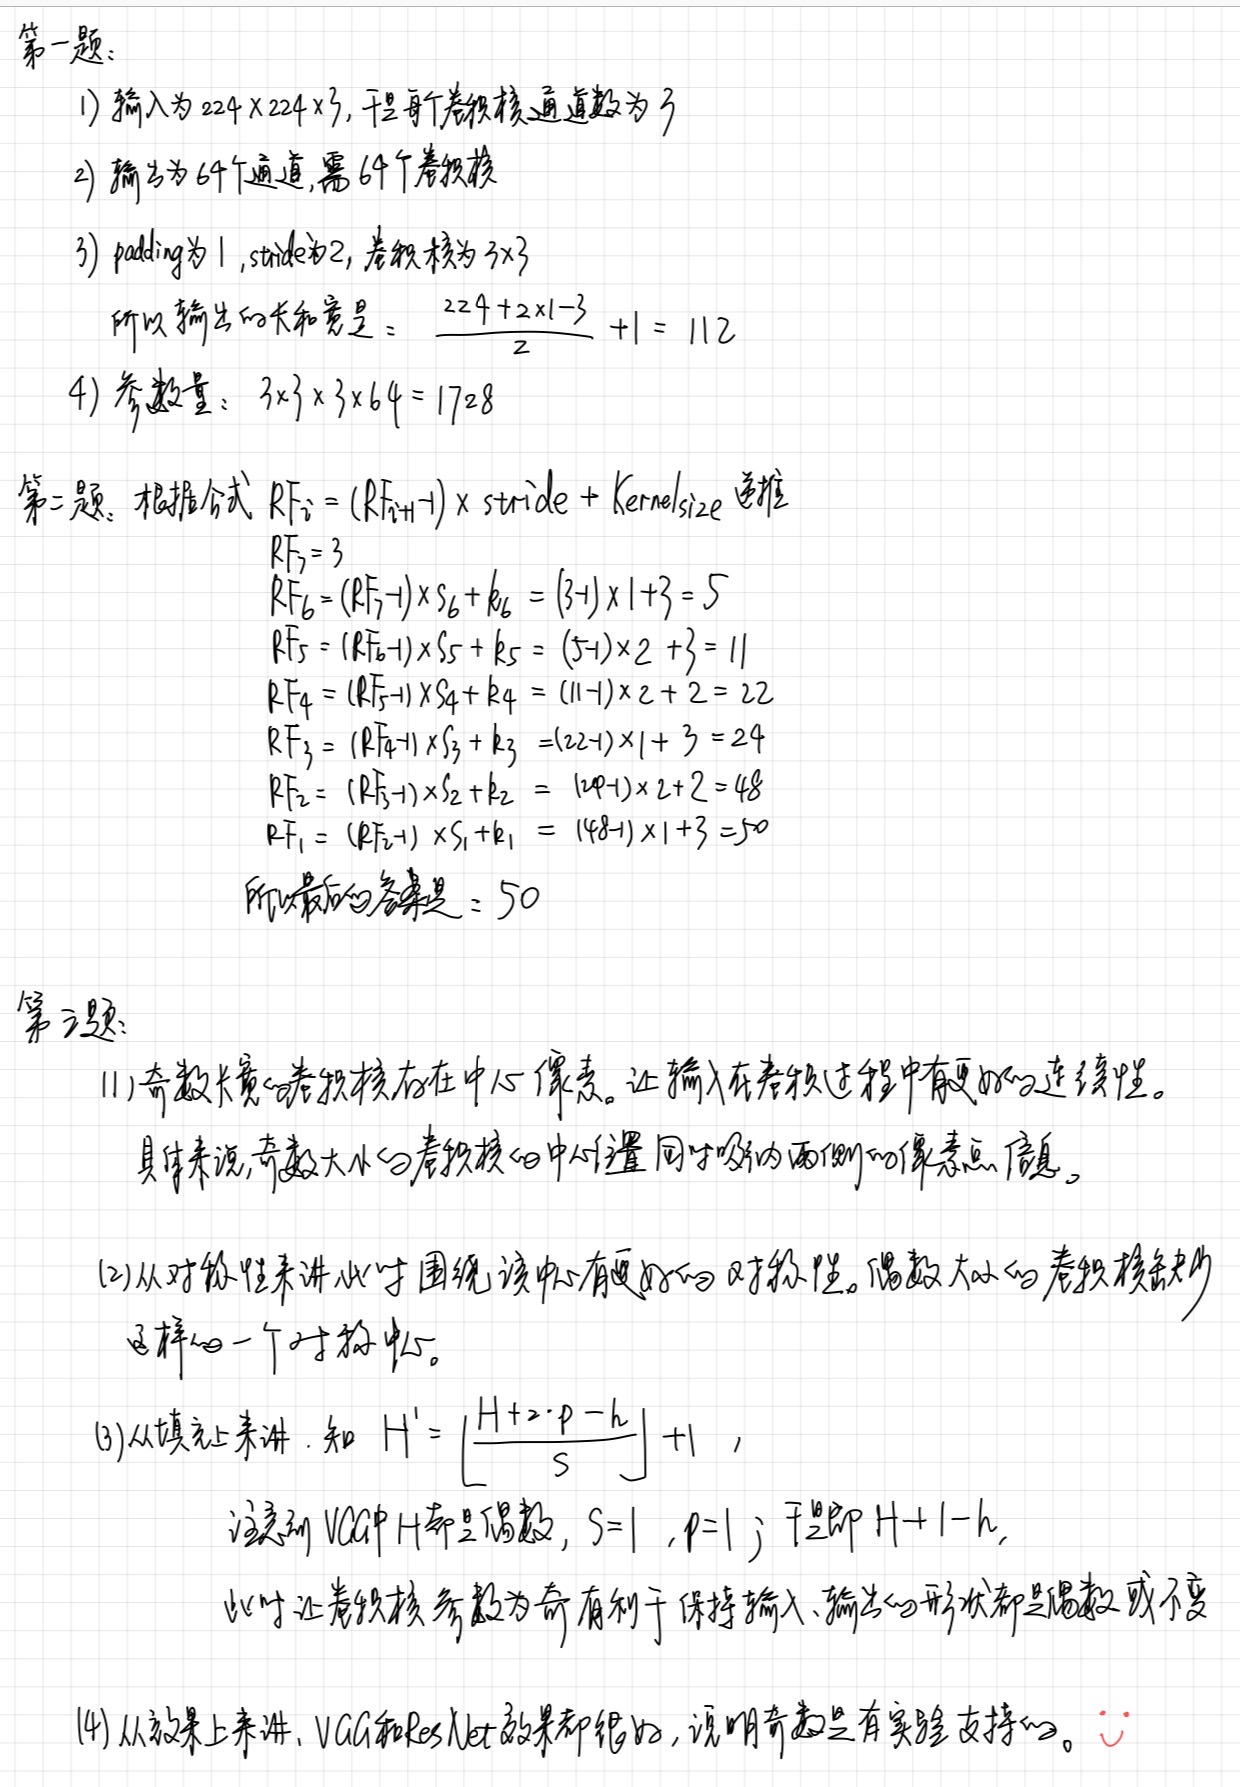 第一题：
1) 输入为 224×224×3, 于是每个卷积核通道数为 3
2) 输出为 64个通道, 需 64个卷积核
3) padding为 1 , stride为2, 卷积核为 3×3
所以输出的长和宽是： \frac{224+2×1-3}{2} +1 = 112
4) 参数量： 3×3×3×64 = 1728
第二题：根据公式 RF_i = (RF_{i+1}-1) × stride + Kernelsize 递推
RF_7 = 3
RF_6 = (RF_7-1)×S_6+k_6 = (3-1)×1+3 = 5
RF_5 = (RF_6-1)×S_5+k_5 = (5-1)×2+3 = 11
RF_4 = (RF_5-1)×S_4+k_4 = (11-1)×2+2 = 22
RF_3 = (RF_4-1)×S_3+k_3 = (22-1)×1+3 = 24
RF_2 = (RF_3-1)×S_2+k_2 = (24-1)×2+2 = 48
RF_1 = (RF_2-1)×S_1+k_1 = (48-1)×1+3 = 50
所以最后的答案是：50
第三题：
(1) 奇数长宽的卷积核存在中心像素。让输入在卷积过程中有更好的连续性。
具体来说, 奇数大小的卷积核的中心位置同时吸纳两侧的像素点信息。
(2) 从对称性来讲 此时围绕该中心有更好的对称性。偶数大小的卷积核缺少
这样的一个对称中心。
(3) 从填充上来讲. 知 H' = ⌊\frac{H+2·p-h}{S}⌋ +1 ,
注意到 VGG中 H都是偶数, S=1 , p=1 ; 于是即 H+1-h,
此时让卷积核参数为奇有利于保持输入、输出的形状都是偶数或不变
(4) 从效果上来讲、VGG和ResNet效果都很好, 说明奇数是有实验支持的。